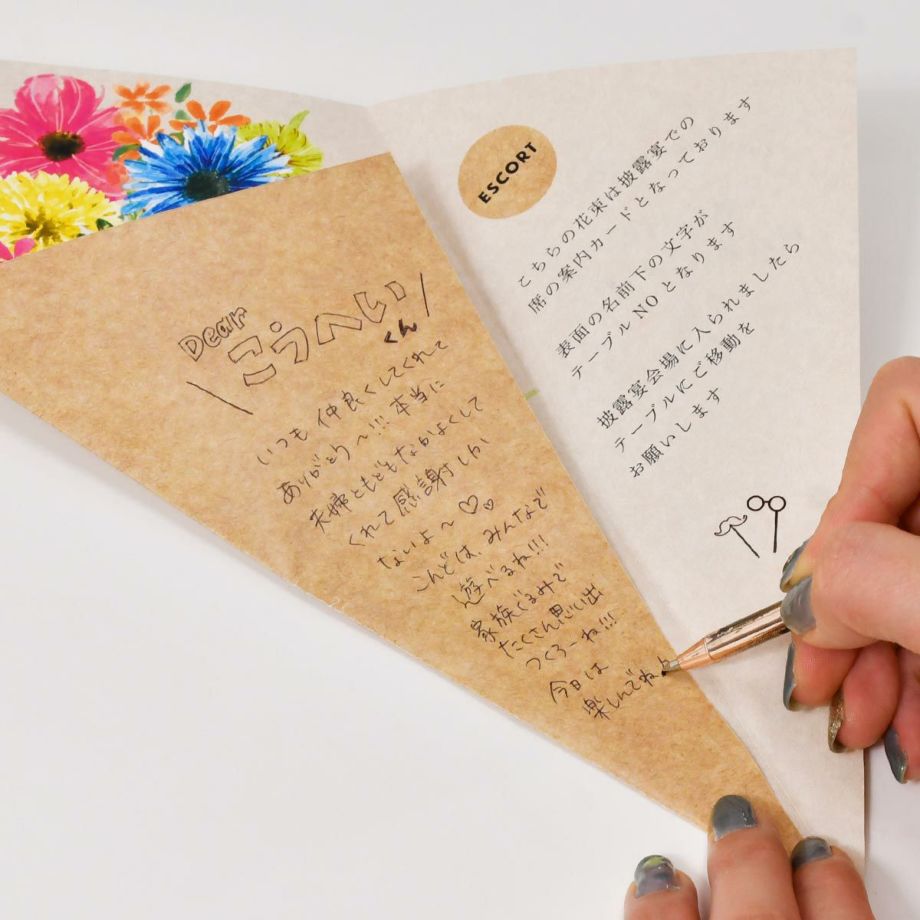 Dear
こうへい
くん
いつも仲良くしてくれて
ありがとう〜!!!本当に
夫婦ともどもなかよくして
くれて感謝しか
ないよ〜♡♡
こんどは、みんなで
遊べるね!!!
家族ぐるみで
たくさん思い出
つくろーね!!!
今日は
楽しんでね♪
ESCORT
こちらの花束は披露宴での
席の案内カードとなっております
表面の名前下の文字が
テーブルNOとなります
披露宴会場に入られましたら
テーブルにご移動を
お願いします